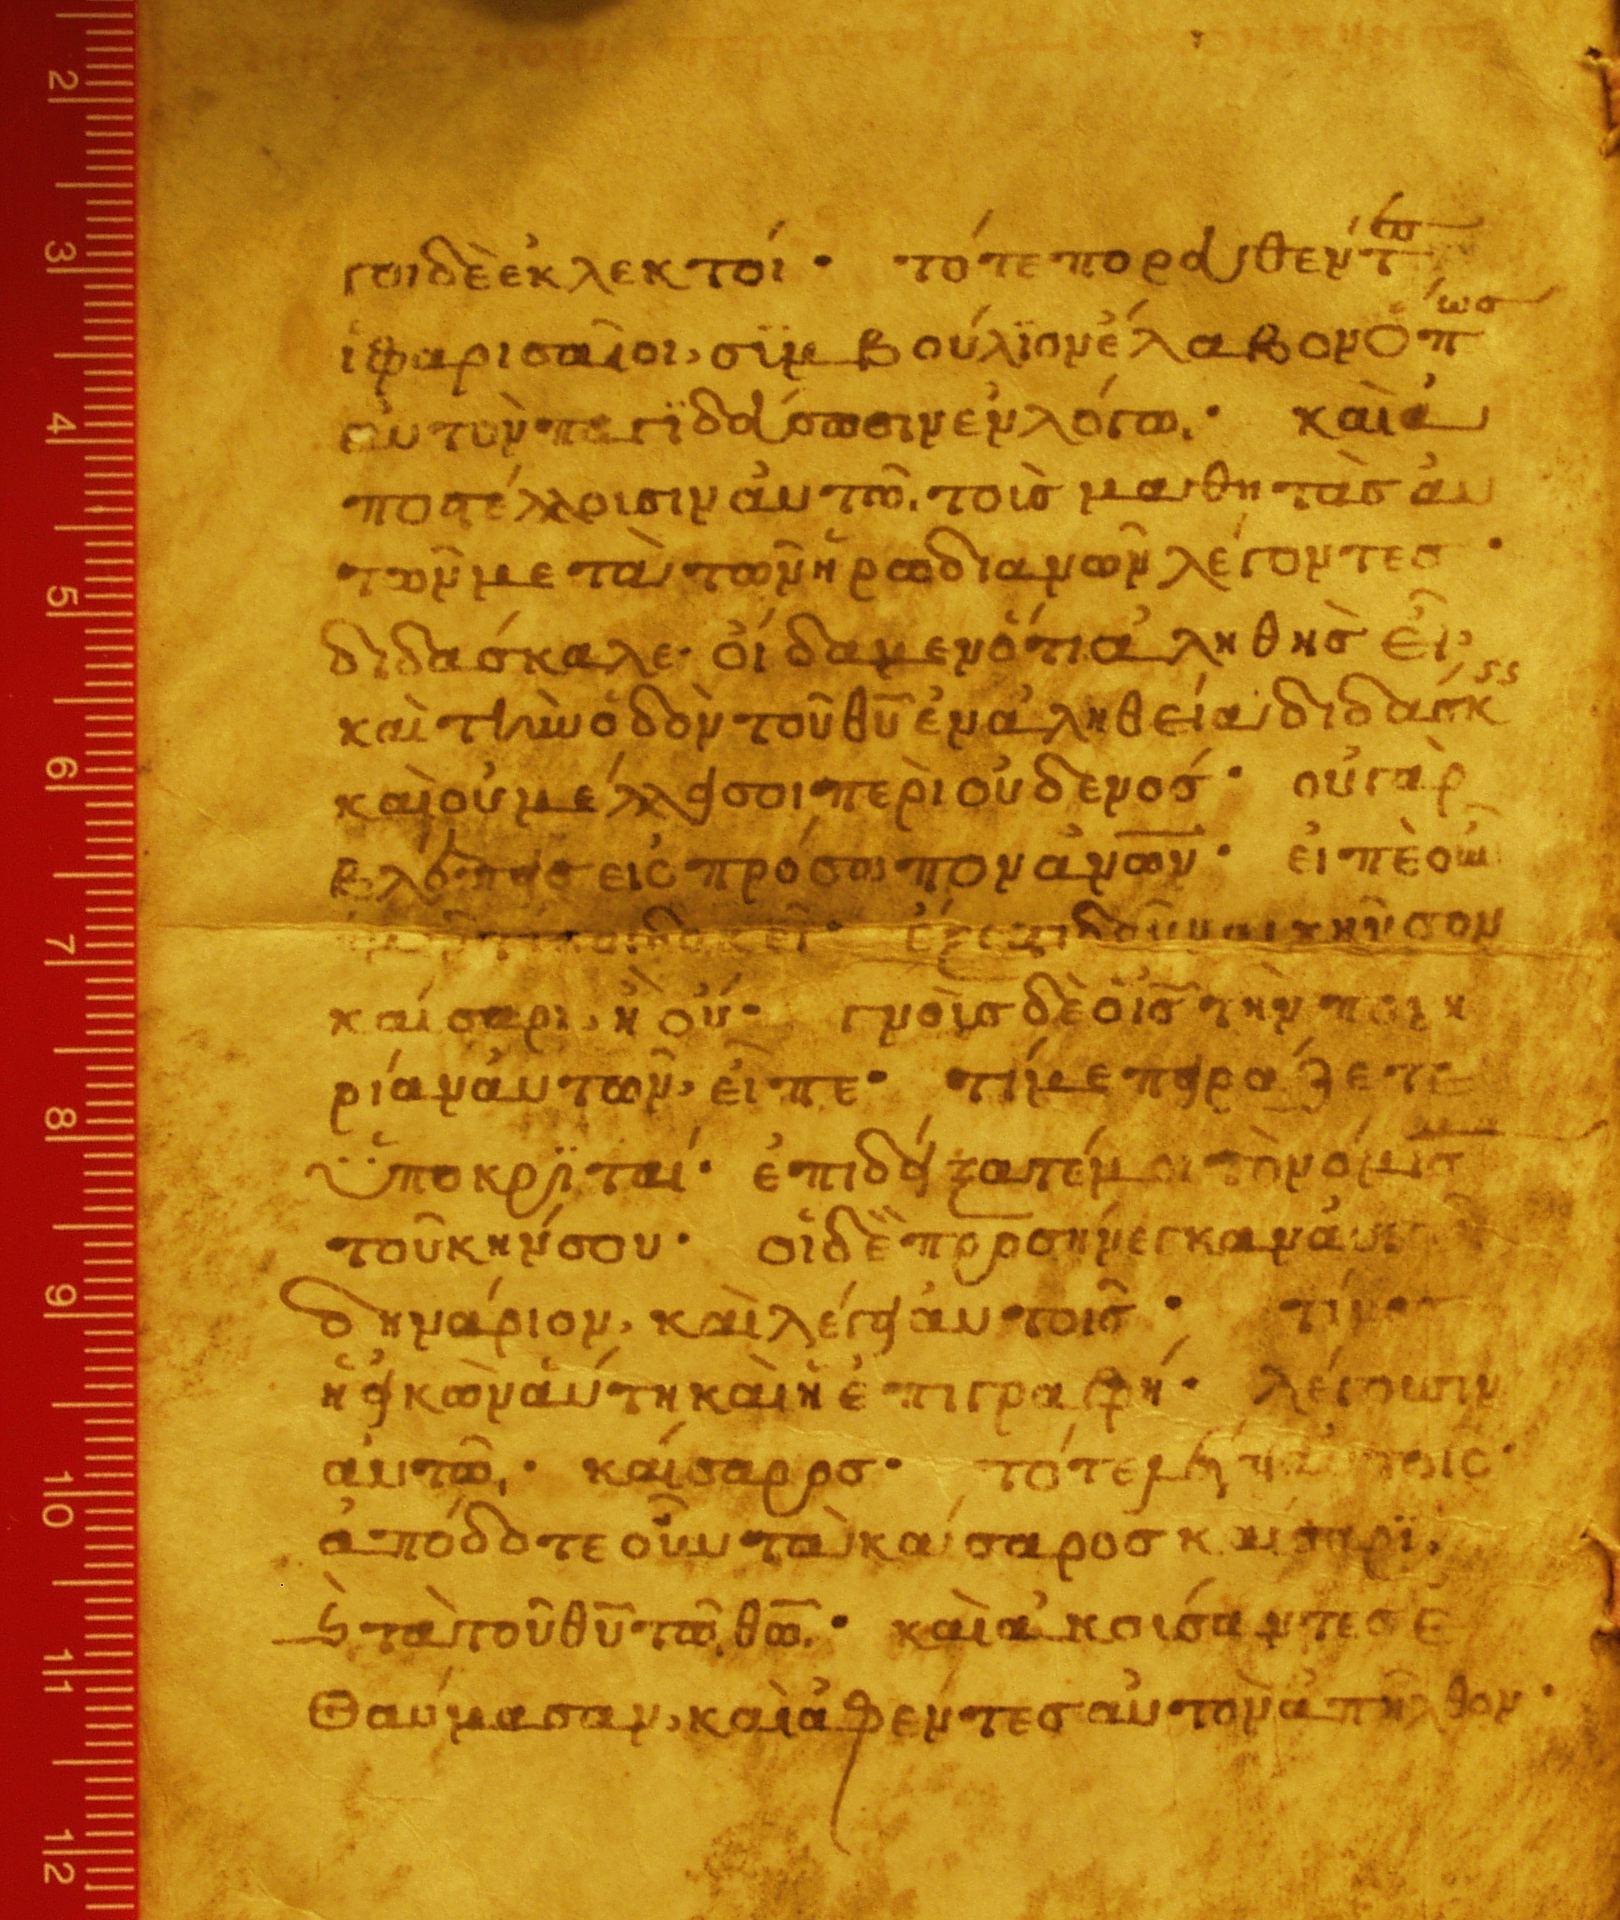 γοι δὲ ἐκλεκτοί · τότε πορευθέντ
ἱ φαρισαῖοι, σϊμβούλϊον ἔλαβον ὅπως
αὐτὸν παγϊδεύσωσιν ἐν λόγω · καὶ ἀ
ποστέλλοισιν ἀυτῶ τοὶς μαθητὰς ἀυ
τῶν μετὰ τῶν ἡρωδιανῶν λέγοντες ·
διδάσκαλε · οἴδαμεν ὅτι ἀληθὴς εἶ
καὶ τὴν ὁδὸν τοῦ θῦ ἐν ἀληθεία διδάσκ
καὶ οὐ μέλλει σοι περὶ οὐδενός · οὐ γὰρ
βλέπεις εἰς πρόσωπον ἀνων · εἰπὲ οὖν
ἔξεστι δοῦναι κῆνσον
καίσαρι, ἢ οὔ · γνοὺς δὲ ὁ ις τὴν πονη
ρίαν ἀυτῶν, εἶπε · τί με πειράζετε
ϋποκρϊταί · ἐπιδείξατέ μοι τὸ νόμισ
τοῦ κήνσου · οἱ δὲ προσήνεγκαν ἀυτ
δηνάριον, καὶ λέγει ἀυτοῖς · τίνος
ἡ εἰκὼν ἁύτη καὶ ἡ ἐπιγραφή · λέγουσιν
ἀυτῶ · καίσαρος · τότε λέγει ἀυτοῖς ·
ἀπόδοτε οὖν τὰ καίσαρος καίσαρϊ,
ϗ τὰ τοῦ θῦ τῶ θῶ · καὶ ἀκοισαντες ἐ
θαύμασαν, καὶ ἀφέντες αὐτὸν ἀπῆλθον ·